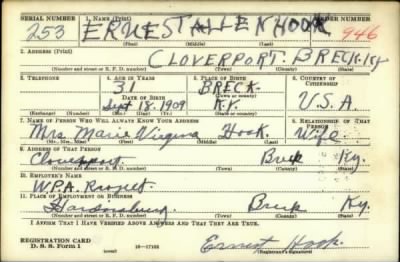 SERIAL NUMBER 1. NAME (Print) ORDER NUMBER
253 ERNEST ALLEN HOOK 946
(First) (Middle) (Last)
2. ADDRESS (Print)
CLOVERPORT. BRECK. KY
(Number and street or R. F. D. number) (Town) (County) (State)
3. TELEPHONE 4. AGE IN YEARS 5. PLACE OF BIRTH 6. COUNTRY OF CITIZENSHIP
31 BRECK.
DATE OF BIRTH (Town or county)
Sept 18. 1909 KY. U.S.A
(Exchange) (Number) (Mo.) (Day) (Yr.) (State or country)
7. NAME OF PERSON WHO WILL ALWAYS KNOW YOUR ADDRESS 8. RELATIONSHIP OF THAT PERSON
Mrs. Marie Virginia Hook. Wife
(Mr., Mrs., Miss) (First) (Middle) (Last)
9. ADDRESS OF THAT PERSON
Cloverport Breck Ky.
(Number and street or R. F. D. number) (Town) (County) (State)
10. EMPLOYER'S NAME
W.P.A. Project
11. PLACE OF EMPLOYMENT OR BUSINESS
Hardinsburg. Breck Ky.
(Number and street or R. F. D. number) (Town) (County) (State)
I AFFIRM THAT I HAVE VERIFIED ABOVE ANSWERS AND THAT THEY ARE TRUE.
REGISTRATION CARD
D. S. S. Form 1 (over) 16—17105 Ernest Hook.
(Registrant's signature)